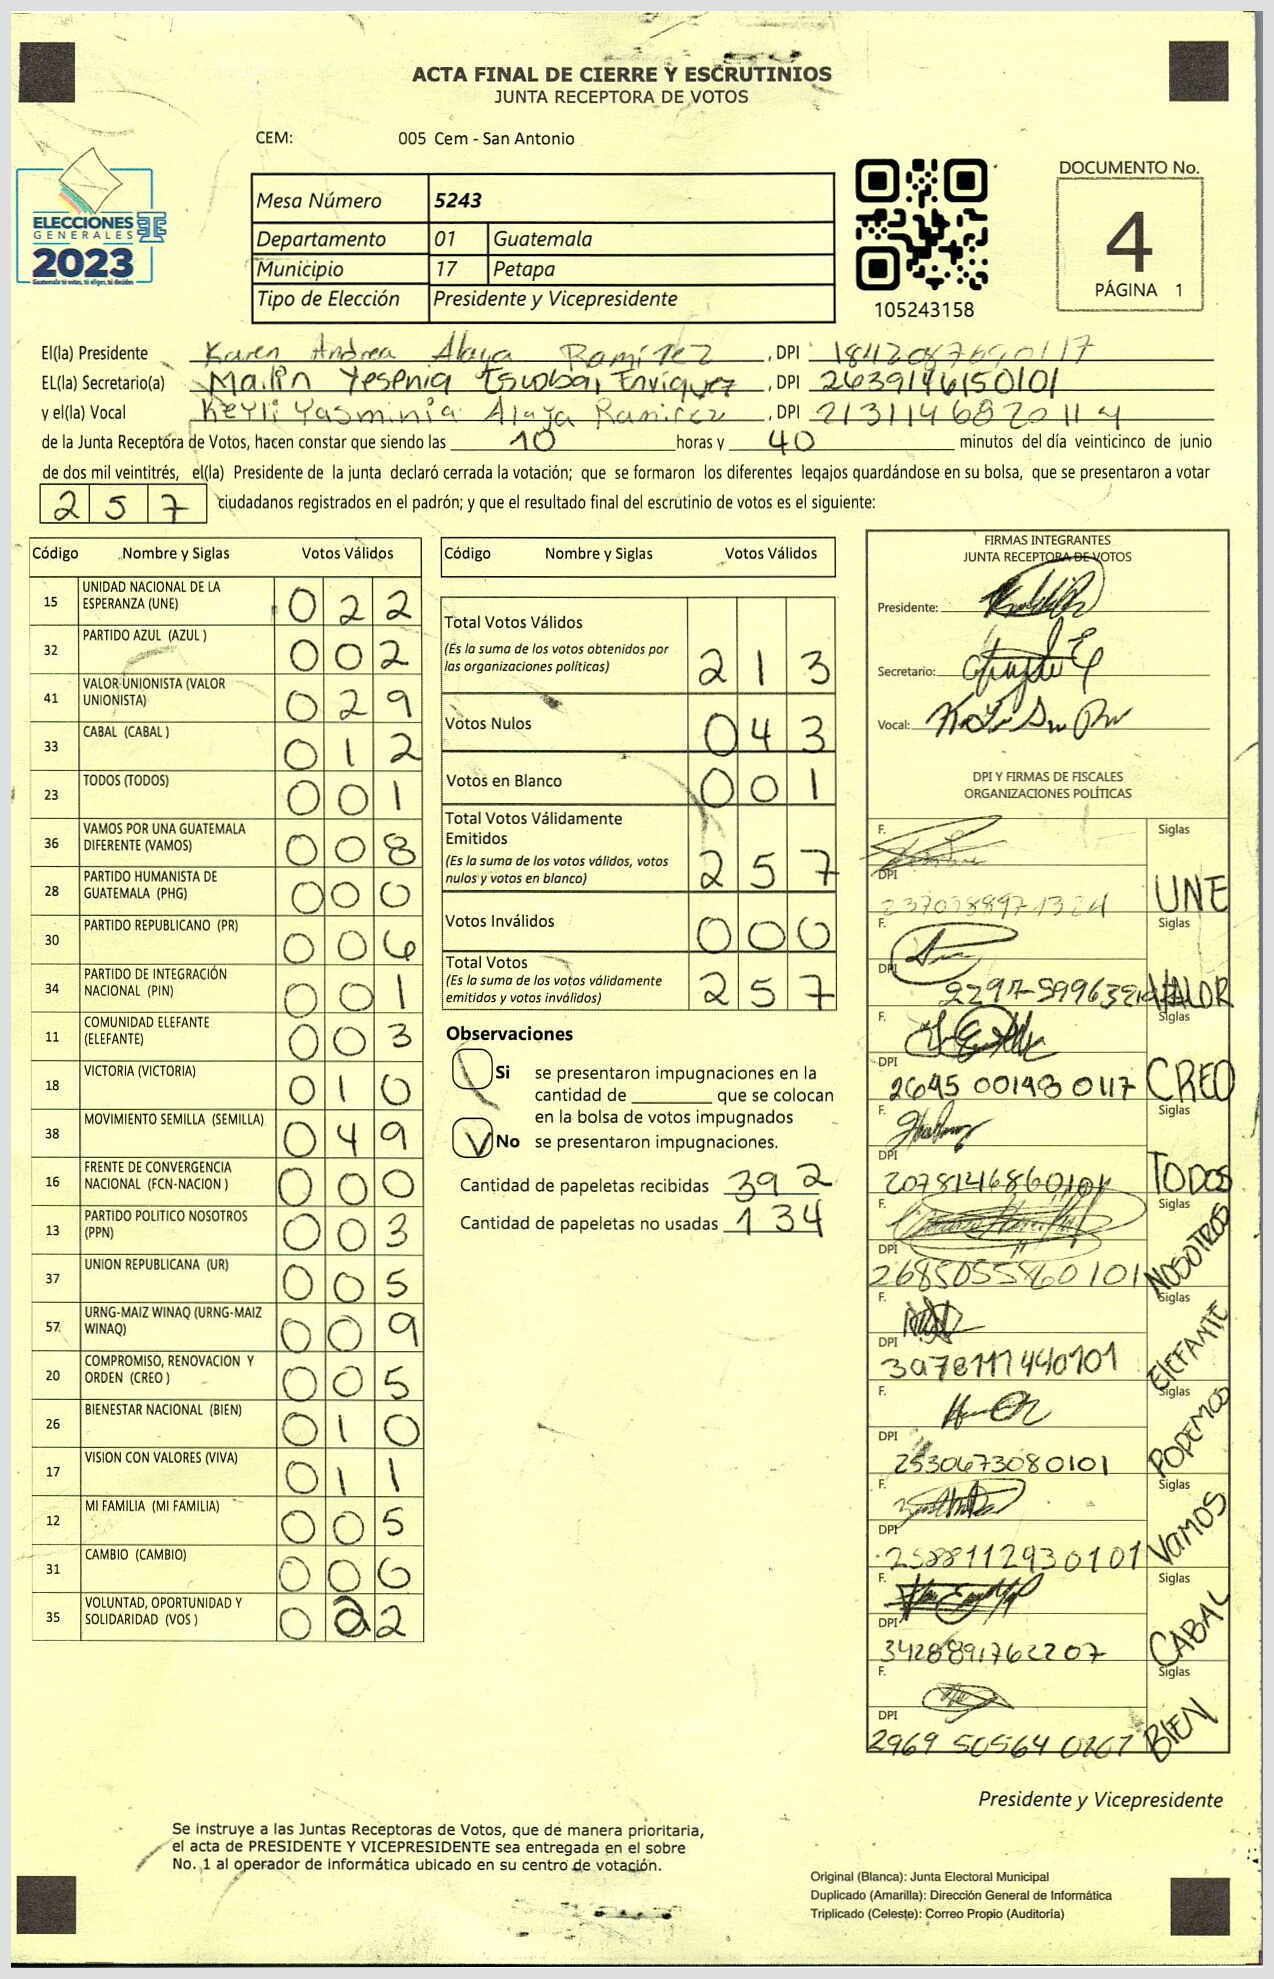 ACTA FINAL DE CIERRE Y ESCRUTINIOS
JUNTA RECEPTORA DE VOTOS
CEM: 005 Cem - San Antonio
ELECCIONES
GENERALES
2023
Guatemala tú votas, tú eliges, tú decides
Mesa Número 5243
Departamento 01 Guatemala
Municipio 17 Petapa
Tipo de Elección Presidente y Vicepresidente
105243158
DOCUMENTO No.
4
PÁGINA 1
El(la) Presidente Karen Andrea Alaya Ramírez , DPI
EL(la) Secretario(a) Mailin Yesenia Escobar Enríquez , DPI 2639146150101
y el(la) Vocal Keyli Yasminia Alaya Ramirez , DPI 2131146820114
de la Junta Receptora de Votos, hacen constar que siendo las 10 horas y 40 minutos del día veinticinco de junio
de dos mil veintitrés, el(la) Presidente de la junta declaró cerrada la votación; que se formaron los diferentes legajos guardándose en su bolsa, que se presentaron a votar
257 ciudadanos registrados en el padrón; y que el resultado final del escrutinio de votos es el siguiente:
Código Nombre y Siglas Votos Válidos
15 UNIDAD NACIONAL DE LA ESPERANZA (UNE) 022
32 PARTIDO AZUL (AZUL ) 002
41 VALOR UNIONISTA (VALOR UNIONISTA) 029
33 CABAL (CABAL ) 012
23 TODOS (TODOS) 001
36 VAMOS POR UNA GUATEMALA DIFERENTE (VAMOS) 008
28 PARTIDO HUMANISTA DE GUATEMALA (PHG) 000
30 PARTIDO REPUBLICANO (PR) 006
34 PARTIDO DE INTEGRACIÓN NACIONAL (PIN) 001
11 COMUNIDAD ELEFANTE (ELEFANTE) 003
18 VICTORIA (VICTORIA) 010
38 MOVIMIENTO SEMILLA (SEMILLA) 049
16 FRENTE DE CONVERGENCIA NACIONAL (FCN-NACION ) 000
13 PARTIDO POLITICO NOSOTROS (PPN) 003
37 UNION REPUBLICANA (UR) 005
57 URNG-MAIZ WINAQ (URNG-MAIZ WINAQ) 009
20 COMPROMISO, RENOVACION Y ORDEN (CREO ) 005
26 BIENESTAR NACIONAL (BIEN) 010
17 VISION CON VALORES (VIVA) 011
12 MI FAMILIA (MI FAMILIA) 005
31 CAMBIO (CAMBIO) 006
35 VOLUNTAD, OPORTUNIDAD Y SOLIDARIDAD (VOS ) 022
Código Nombre y Siglas Votos Válidos
Total Votos Válidos 213
(Es la suma de los votos obtenidos por
las organizaciones políticas)
Votos Nulos 043
Votos en Blanco 001
Total Votos Válidamente
Emitidos 257
(Es la suma de los votos válidos, votos
nulos y votos en blanco)
Votos Inválidos 000
Total Votos 257
(Es la suma de los votos válidamente
emitidos y votos inválidos)
Observaciones
Si se presentaron impugnaciones en la
cantidad de ________ que se colocan
en la bolsa de votos impugnados
No se presentaron impugnaciones.
Cantidad de papeletas recibidas 392
Cantidad de papeletas no usadas 134
FIRMAS INTEGRANTES
JUNTA RECEPTORA DE VOTOS
Presidente:
Secretario:
Vocal:
DPI Y FIRMAS DE FISCALES
ORGANIZACIONES POLÍTICAS
F. Siglas
DPI UNE
F. Siglas
DPI VALOR
F. Siglas
DPI 2645 00148 0117 CREO
F. Siglas
DPI 2078146860101 TODOS
F. Siglas
DPI 2685055860101 NOSOTROS
F. Siglas
DPI ELEFANTE
F. Siglas
DPI 2530673080101 PODEMOS
F. Siglas
DPI 2588112930101 VAMOS
F. Siglas
DPI 3428891762207 CABAL
F. Siglas
DPI 2969 50564 0207 BIEN
Presidente y Vicepresidente
Se instruye a las Juntas Receptoras de Votos, que de manera prioritaria,
el acta de PRESIDENTE Y VICEPRESIDENTE sea entregada en el sobre
No. 1 al operador de informática ubicado en su centro de votación.
Original (Blanca): Junta Electoral Municipal
Duplicado (Amarilla): Dirección General de Informática
Triplicado (Celeste): Correo Propio (Auditoría)